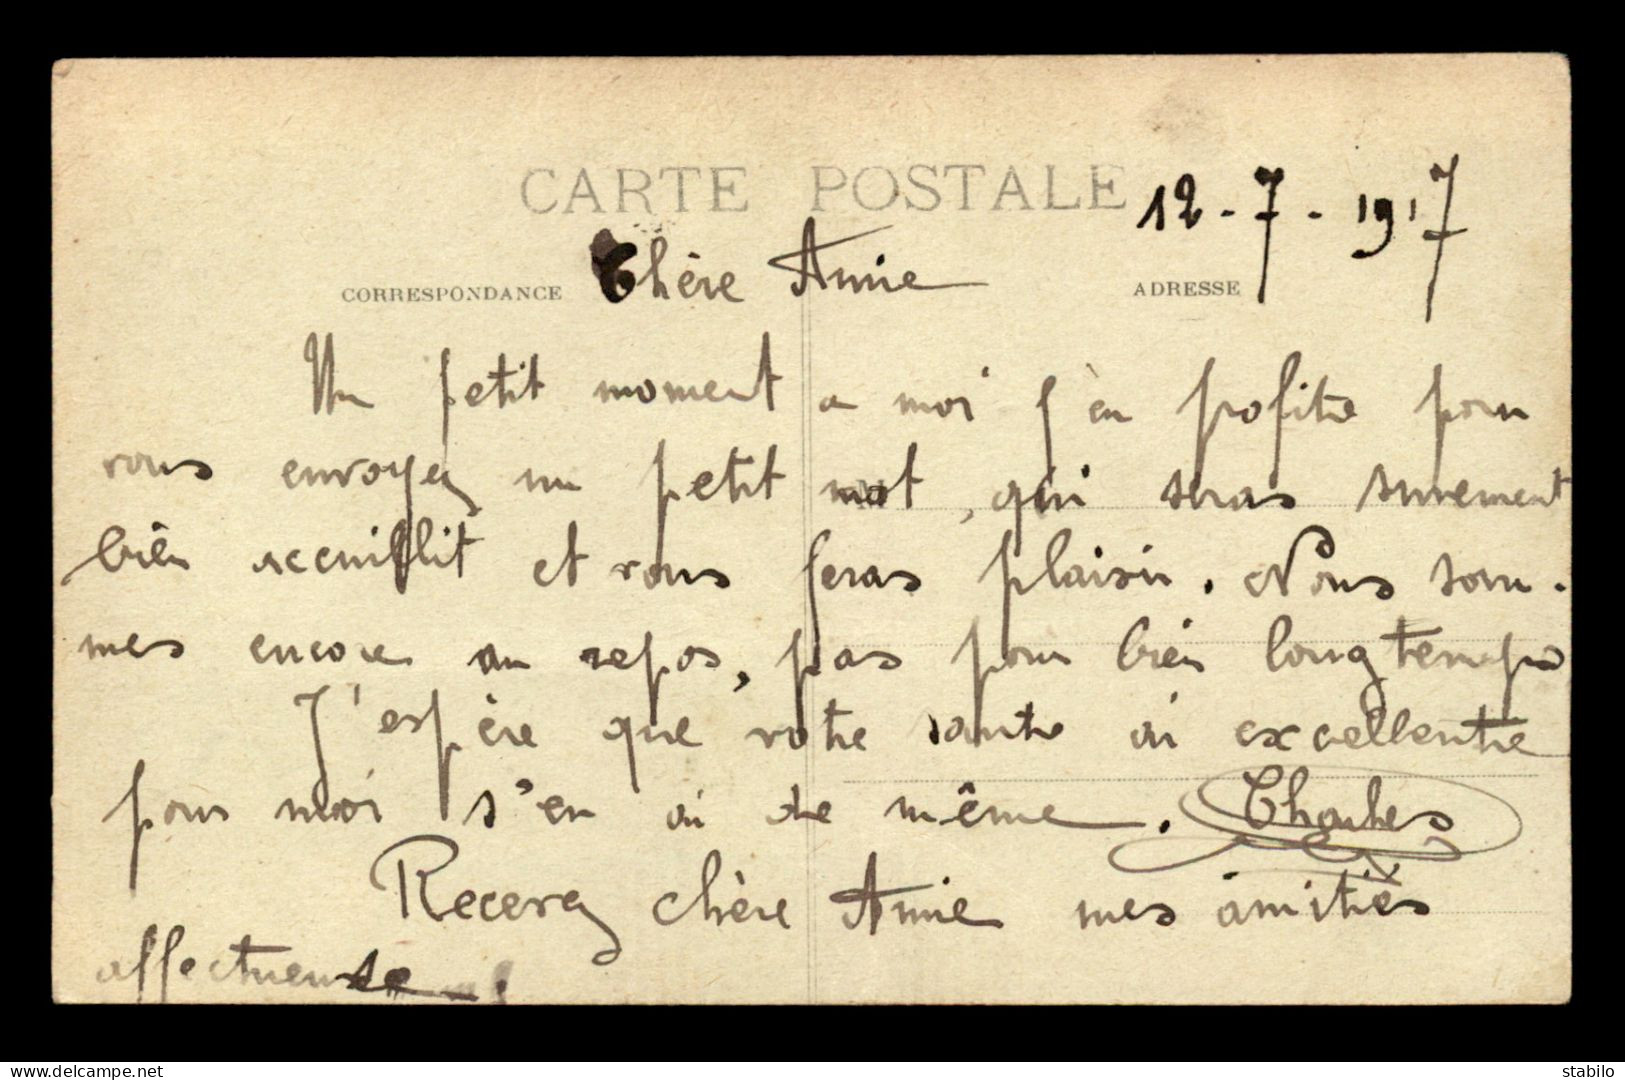 CARTE POSTALE
12-7-1917
CORRESPONDANCE
Chère Amie
ADRESSE
Un petit moment a moi j'en profite pour
vous envoyez un petit mot, qui seras surement
bien acceuillit et vous feras plaisir. Nous som-
mes encore au repos, pas pour bien longtemps
J'espère que votre santé ai excellente
pour moi s'en ai de même. Charles
Recevez chère Amie mes amitiés
affectueuse.
delcampe.net
stabilo